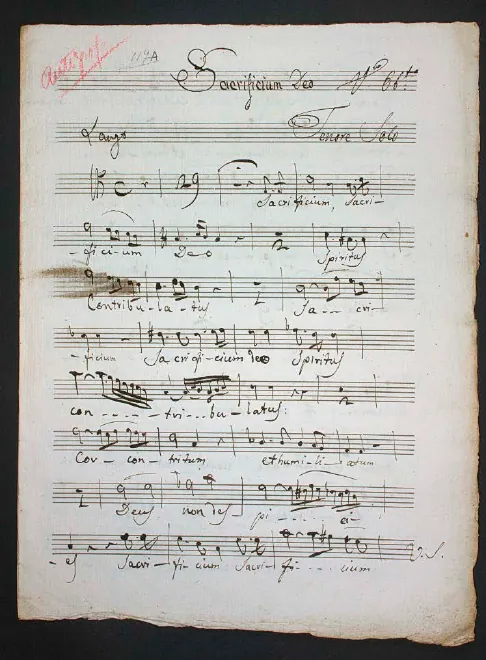 Autograf
119A
Sacrificium Deo No 66to
Largo Tenore Solo
29
Sacrificium, Sacri-
-ficium Deo 2 Spiritus
Contribu-la-tus Sa--cri-
-ficium Sacrificium deo Spiritus
con----tri--bu-latus: 2
Cor-con-tritum ethumi-li-atum
Deus non des- pi---ci-
-es Sacri-fi-cium Sacri-fi----cium V.S.